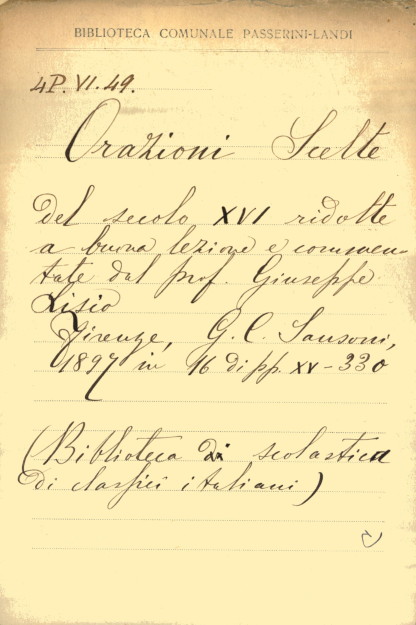 BIBLIOTECA COMUNALE PASSERINI-LANDI
4P. VI. 49.
Orazioni Scelte
del secolo XVI ridotte
a buona lezione e commen-
tate dal prof. Giuseppe
Lisio
Firenze, G. C. Sansoni,
1897 in 16 di pp. XV - 330
(Biblioteca di scolastica
di classici italiani)